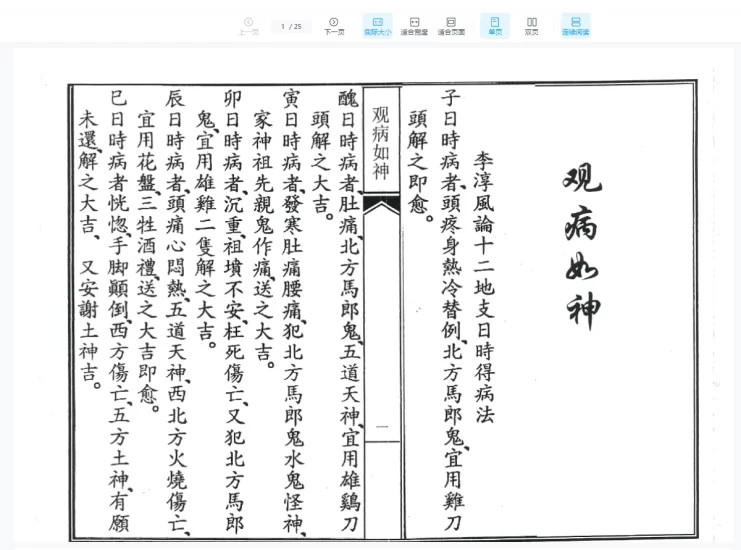 上一页
1 / 25
下一页
实际大小
适合宽度
适合页面
单页
双页
连续阅读
观病如神
李淳風論十二地支日時得病法
子日時病者、頭疼身熱冷替例、北方馬郎鬼、宜用雞刀
頭解之即愈。
观病如神
一
醜日時病者、肚痛、北方馬郎鬼、五道天神、宜用雄鷄刀
頭解之大吉。
寅日時病者、發寒肚痛腰痛、犯北方馬郎鬼水鬼怪神、
家神祖先親鬼作痛、送之大吉。
卯日時病者、沉重、祖墳不安、枉死傷亡、又犯北方馬郎
鬼、宜用雄雞二隻解之大吉。
辰日時病者、頭痛心悶熱、五道天神、西北方火燒傷亡、
宜用花盤、三牲酒禮、送之大吉即愈。
巳日時病者恍惚、手脚顛倒、西方傷亡、五方土神、有願
未還、解之大吉、又安謝土神吉。